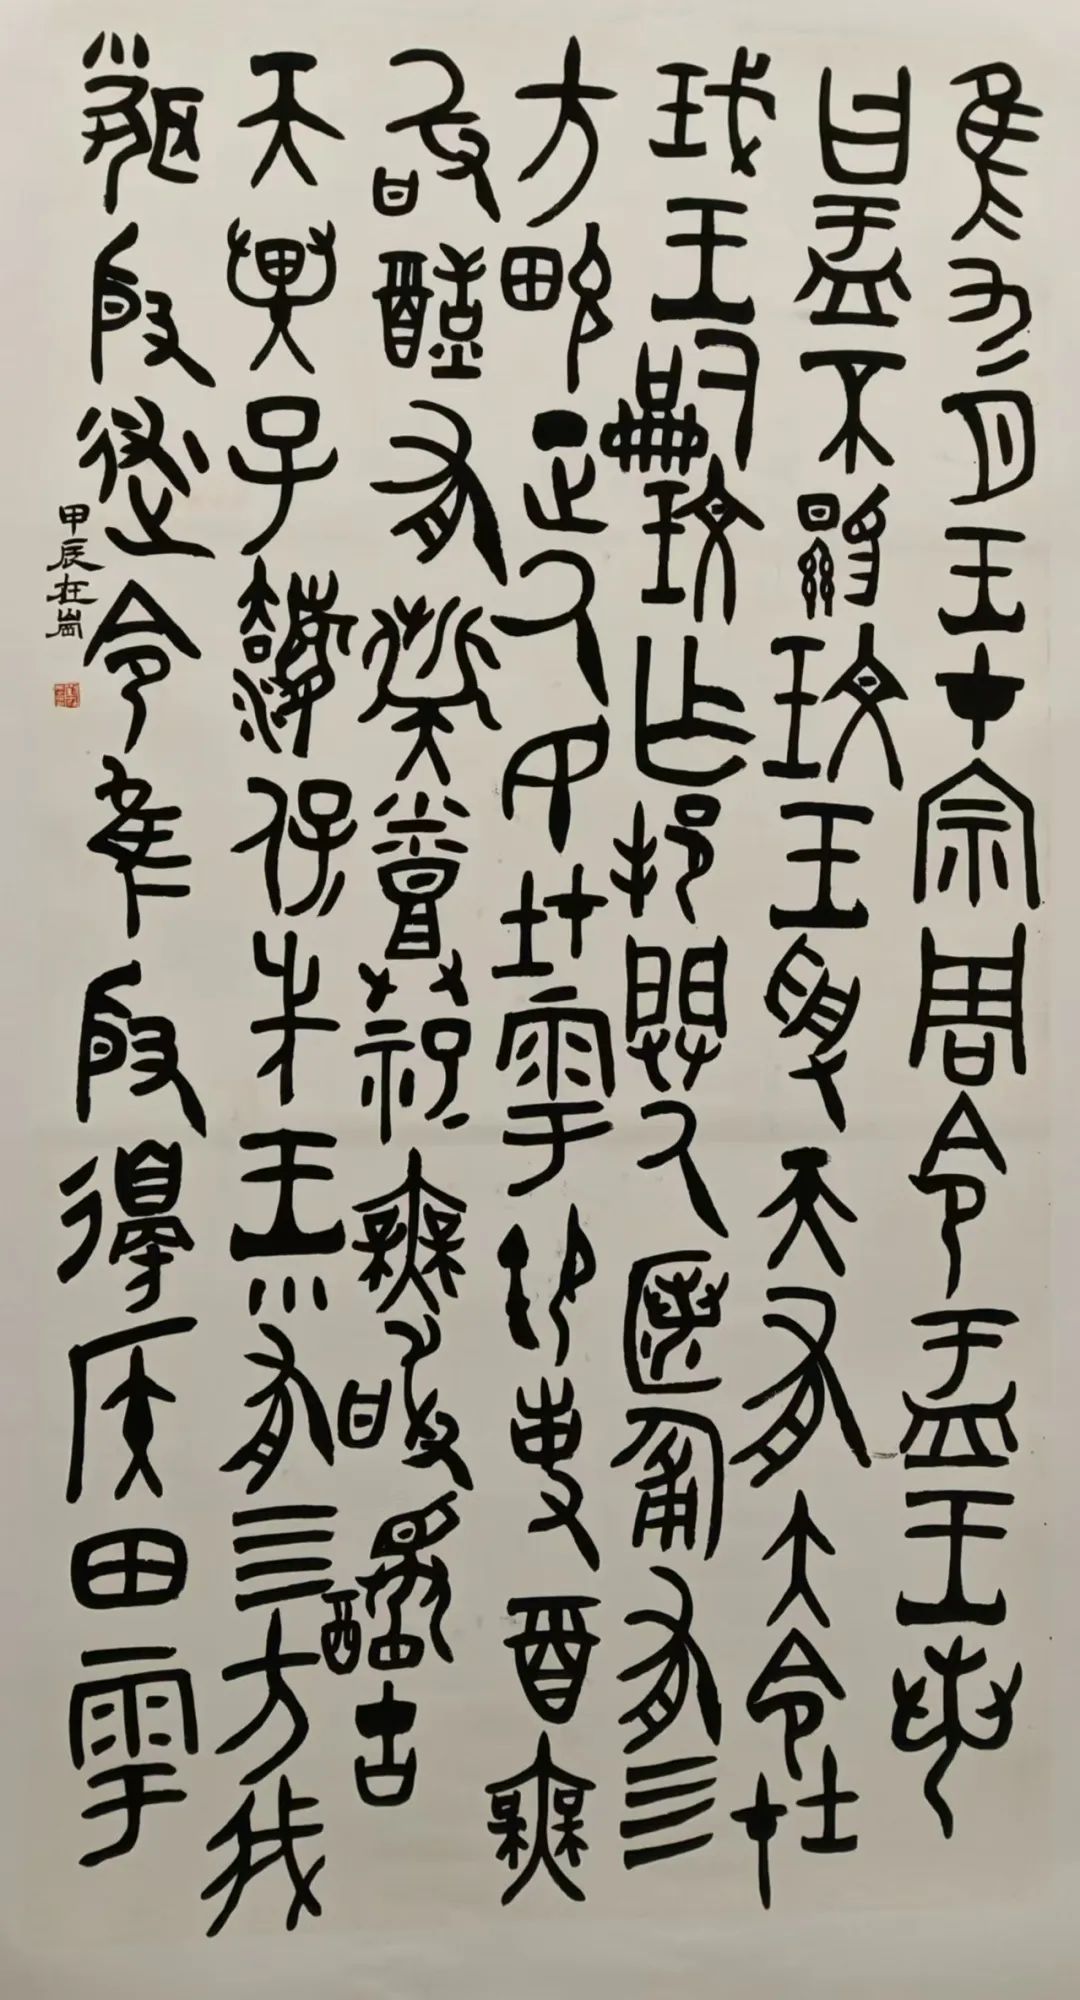 隹九月王才宗周令盂王若
曰盂不顯玟王受天有大令在
珷王嗣玟乍邦闢厥匿匍有四
方畯正厥民在雩御事䖒酉無
敢酖有祡烝祀無敢醻古
天異臨子灋保先王有四方我
聞殷述令隹殷邊侯田雩
甲辰在崗